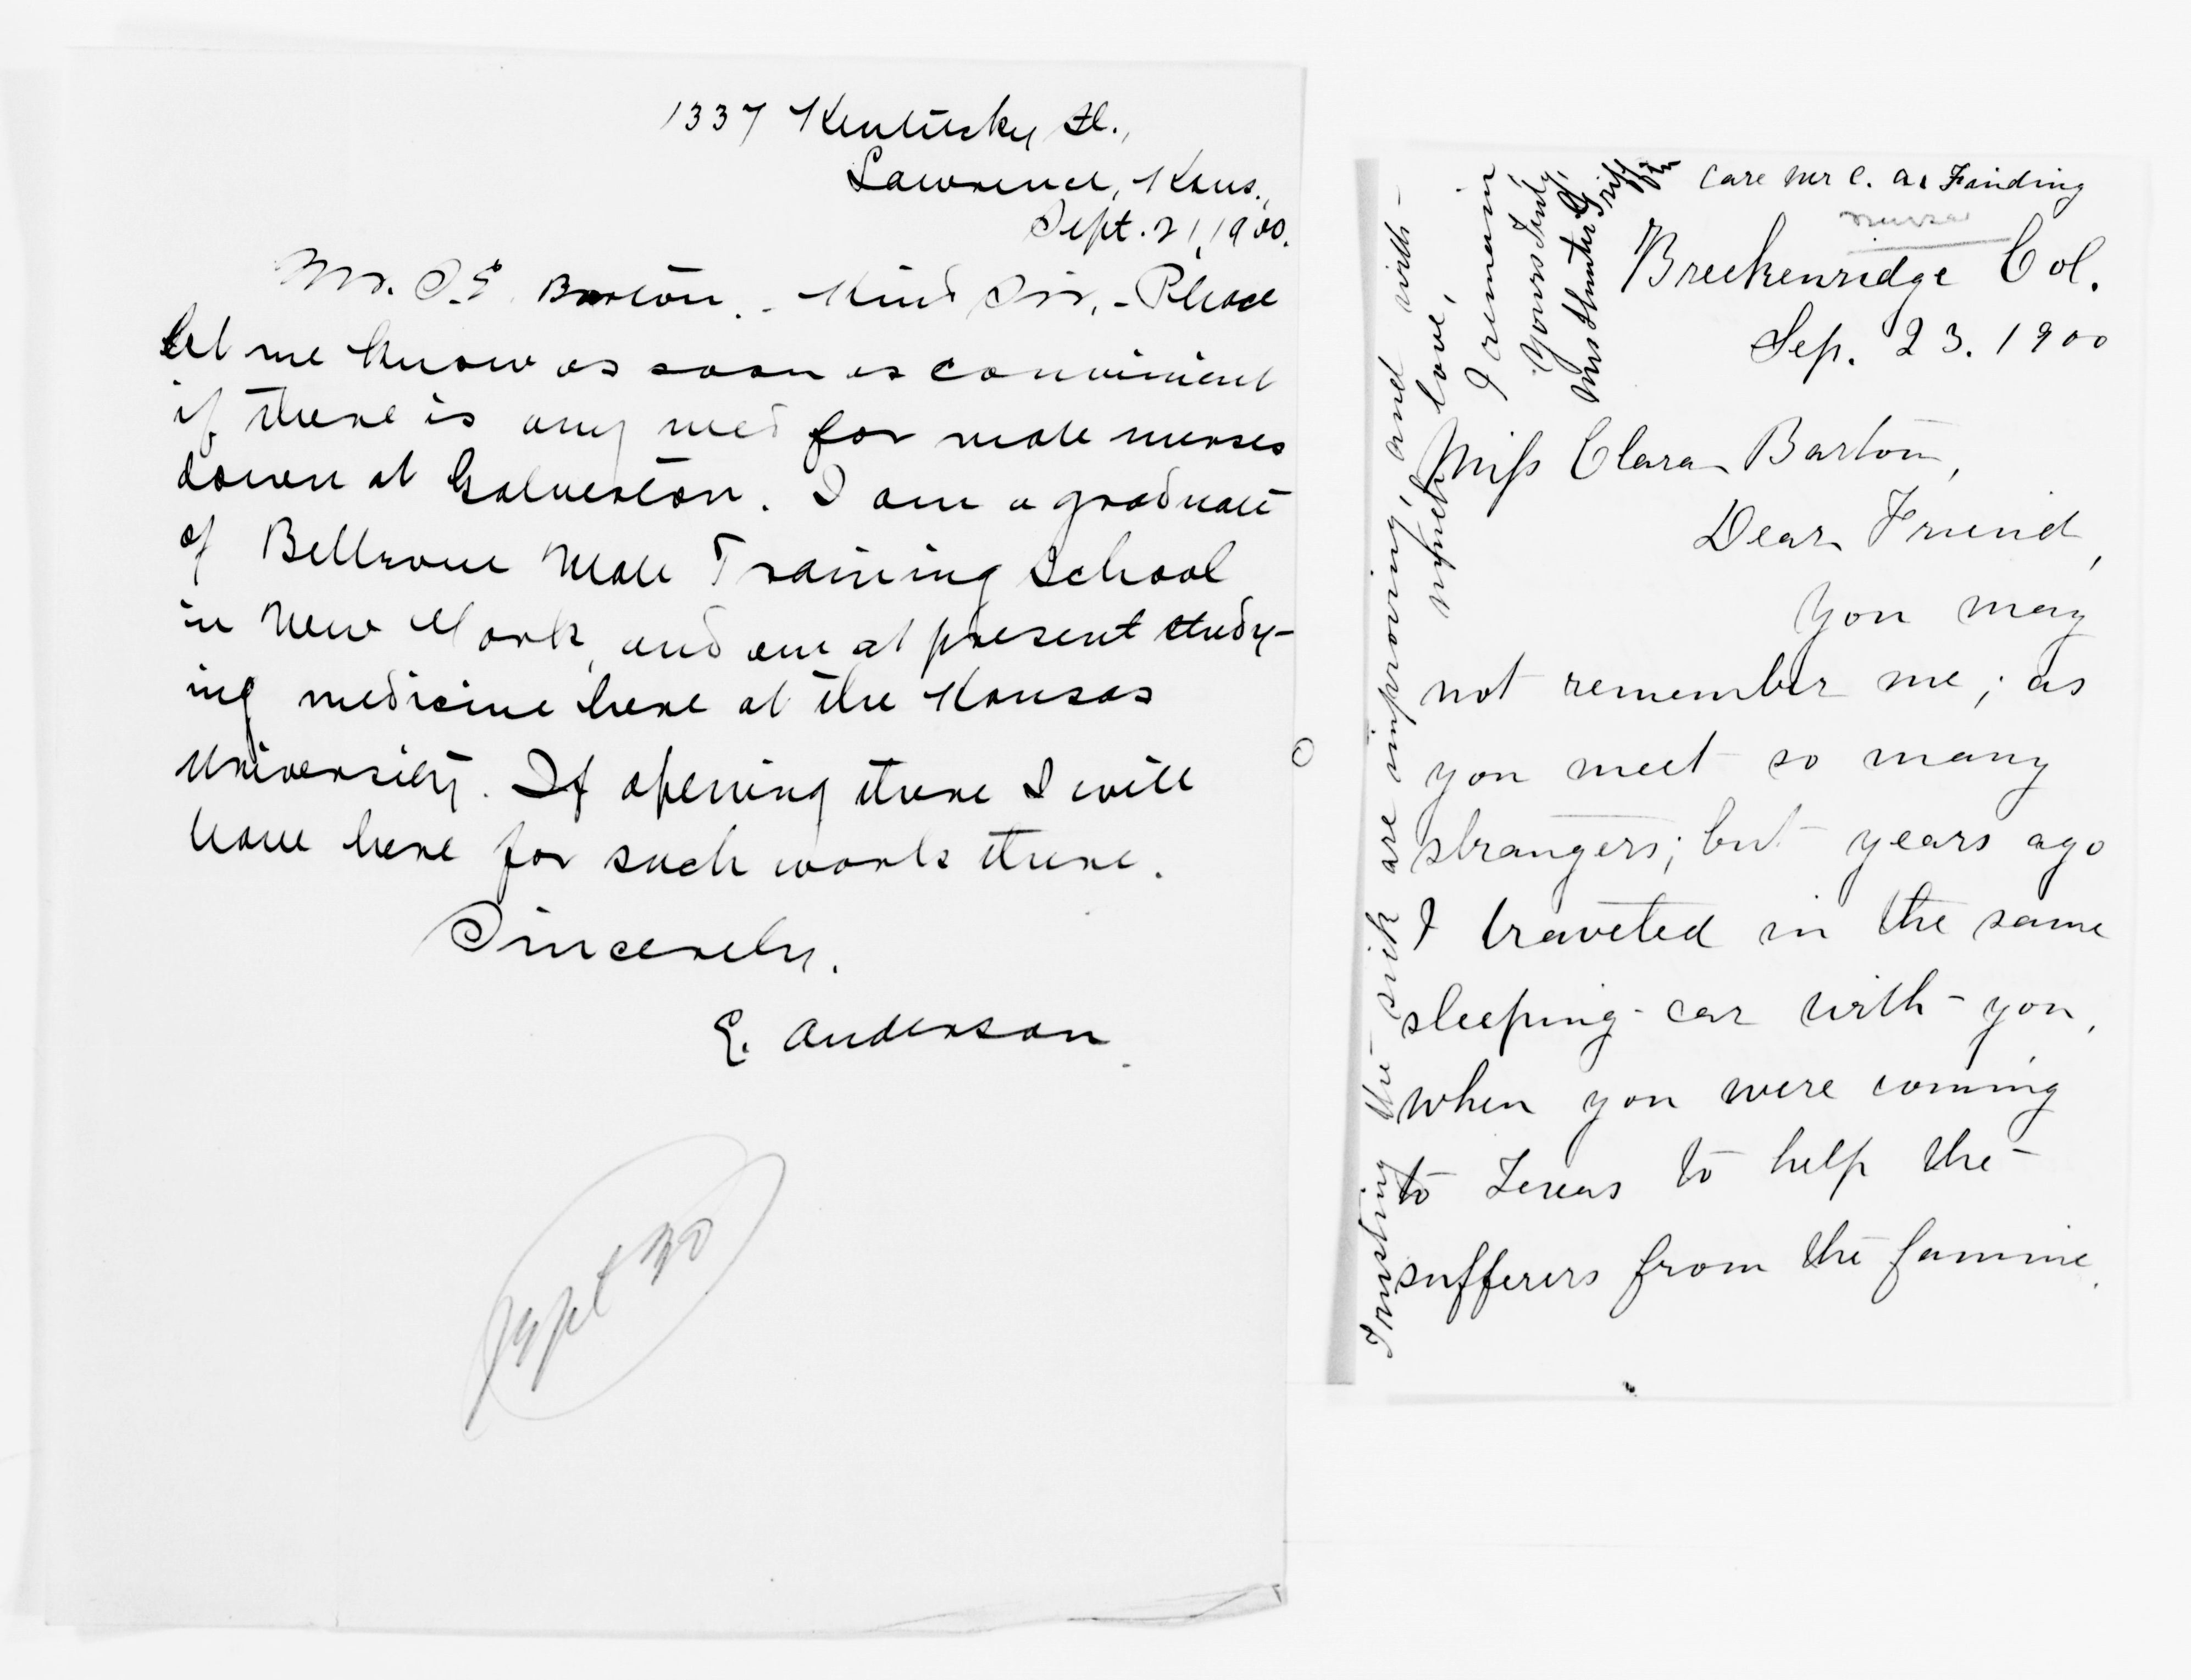 1337 Kentucky St.,
Lawrence, Kans.,
Sept. 21, 1900.
Mr. S. E. Barton. - Kind Sir, - Please
let me know as soon as convenient
if there is any need for male nurses
down at Galveston. I am a graduate
of Bellevue Male Training School
in New York, and am at present study-
ing medicine here at the Kansas
University. If opening there I will
leave here for such work there.
Sincerely.
E. Anderson.
Sept 30
Care Mr C. A. Finding
nurse
Breckenridge Col.
Sep. 23. 1900
Miss Clara Barton,
Dear Friend,
You may
not remember me; as
you meet so many
strangers; but years ago
I traveled in the same
sleeping-car with you,
when you were coming
to Texas to help the
sufferers from the famine.
Trusting the sick are improving, and with
much love,
I remain
Yours Truly,
Mrs Hunter